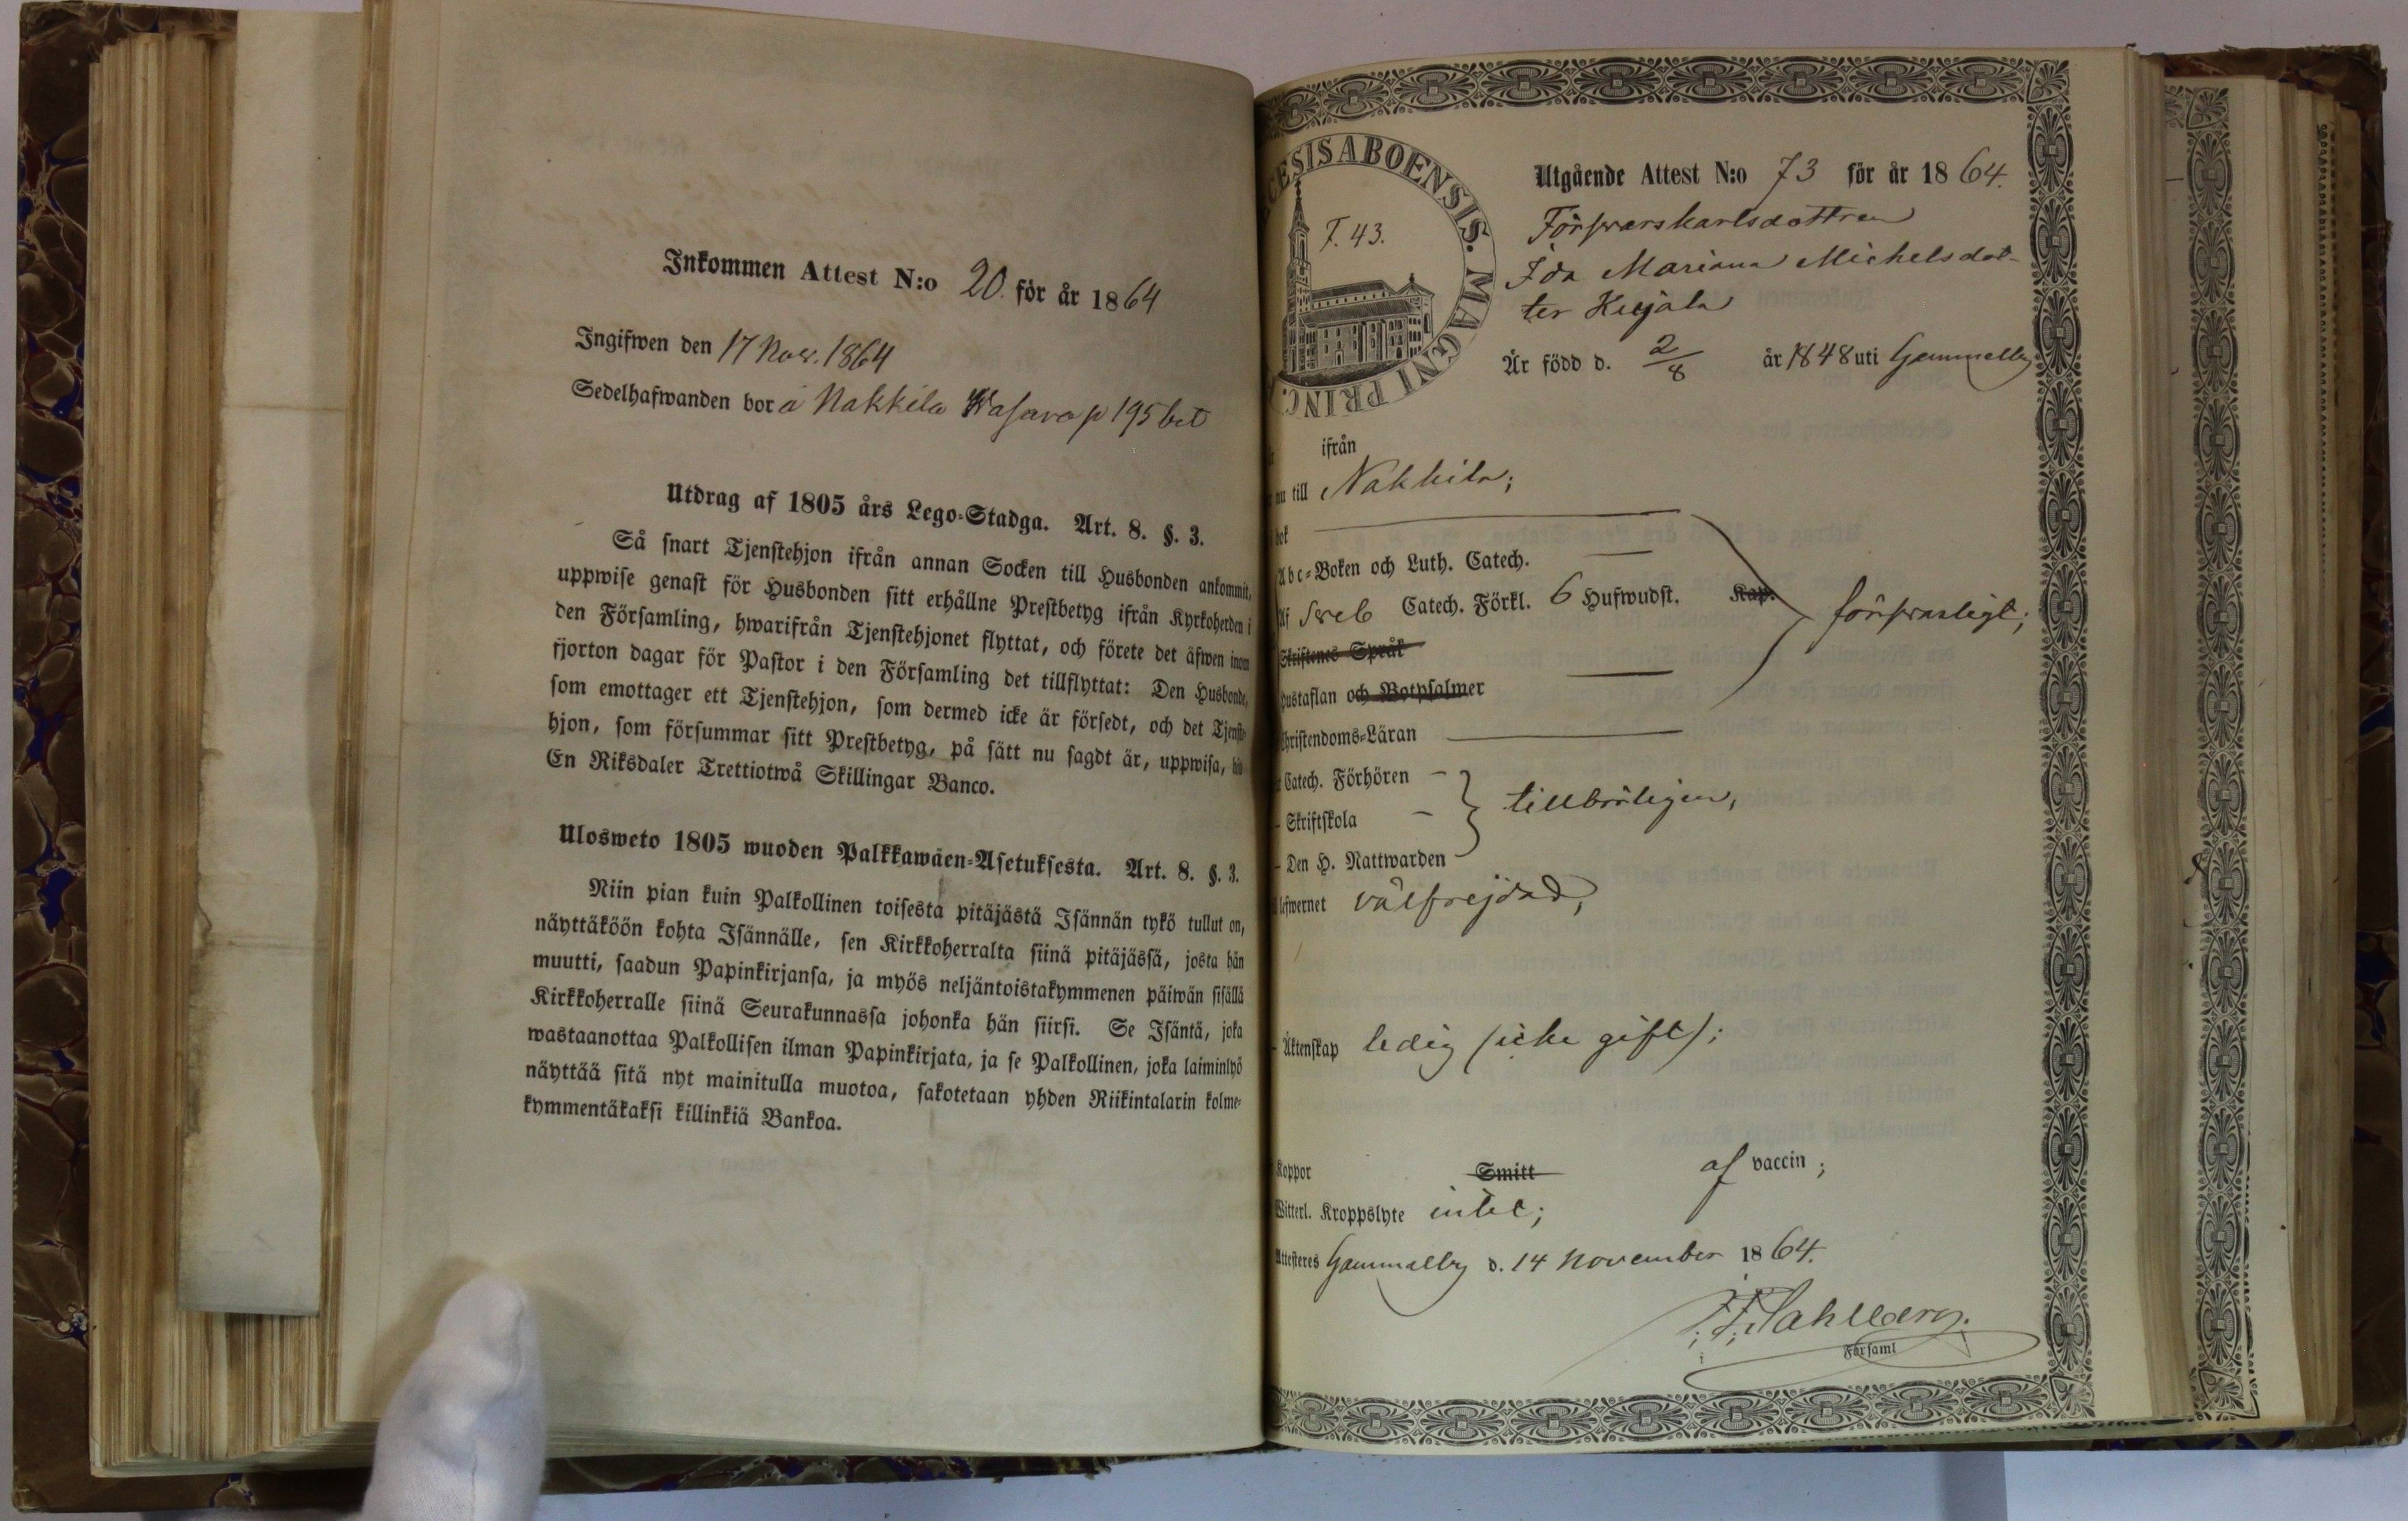 Inkommen Attest N:o 20. för år 1864
Ingifwen den 17 Nov. 1864
Sedelhafwanden bor å Nakkila Wasara p 195 bet
Utdrag af 1805 års Lego-Stadga. Art. 8. §. 3.
Så snart Tjenstehjon ifrån annan Socken till Husbonden ankommit,
uppwise genast för Husbonden sitt erhållne Prestbetyg ifrån Kyrkoherden i
den Församling, hwarifrån Tjenstehjonet flyttat, och förete det äfwen inom
fjorton dagar för Pastor i den Församling det tillflyttat: Den Husbonde,
som emottager ett Tjenstehjon, som dermed icke är försedt, och det Tjenste-
hjon, som försummar sitt Prestbetyg, på sätt nu sagdt är, uppwisa,
En Riksdaler Trettiotwå Skillingar Banco.
Ulosweto 1805 wuoden Palkkawäen-Asetuksesta. Art. 8. §. 3.
Niin pian kuin Palkollinen toisesta pitäjästä Isännän tykö tullut on,
näyttäköön kohta Isännälle, sen Kirkkoherralta siinä pitäjässä, josta hän
muutti, saadun Papinkirjansa, ja myös neljäntoistakymmenen päiwän sisällä
Kirkkoherralle siinä Seurakunnassa johonka hän siirsi. Se Isäntä, joka
wastaanottaa Palkollisen ilman Papinkirjata, ja se Palkollinen, joka laiminlyö
näyttää sitä nyt mainitulla muotoa, sakotetaan yhden Riikintalarin kolme-
kymmentäkaksi killinkiä Bankoa.
CESIS ABOENSIS. MAGNI PRINC.
F. 43.
Utgående Attest N:o 73 för år 1864.
Förswarskarlsdottren
Ida Mariana Michelsdot-
ter Kujala
Är född d. 2/8 år 1848 uti Gammelby
ifrån
nu till Nakkila;
bok
Abc-Boken och Luth. Catech.
Af Sveb Catech. Förkl. 6 Hufwudst. Kap. försvarligt;
Skriftenes Språk
Hustaflan och Botpsalmer
Christendoms-Läran
Catech. Förhören
- Skriftskola tillbörligen,
- Den H. Nattwarden
lefwernet välfrejdad,
- Äktenskap ledig (icke gift);
Koppor Smitt af vaccin;
Witterl. Kroppslyte intet;
Attesteres Gammelby d. 14 November 1864.
F. F. Sahlberg.
i Församl